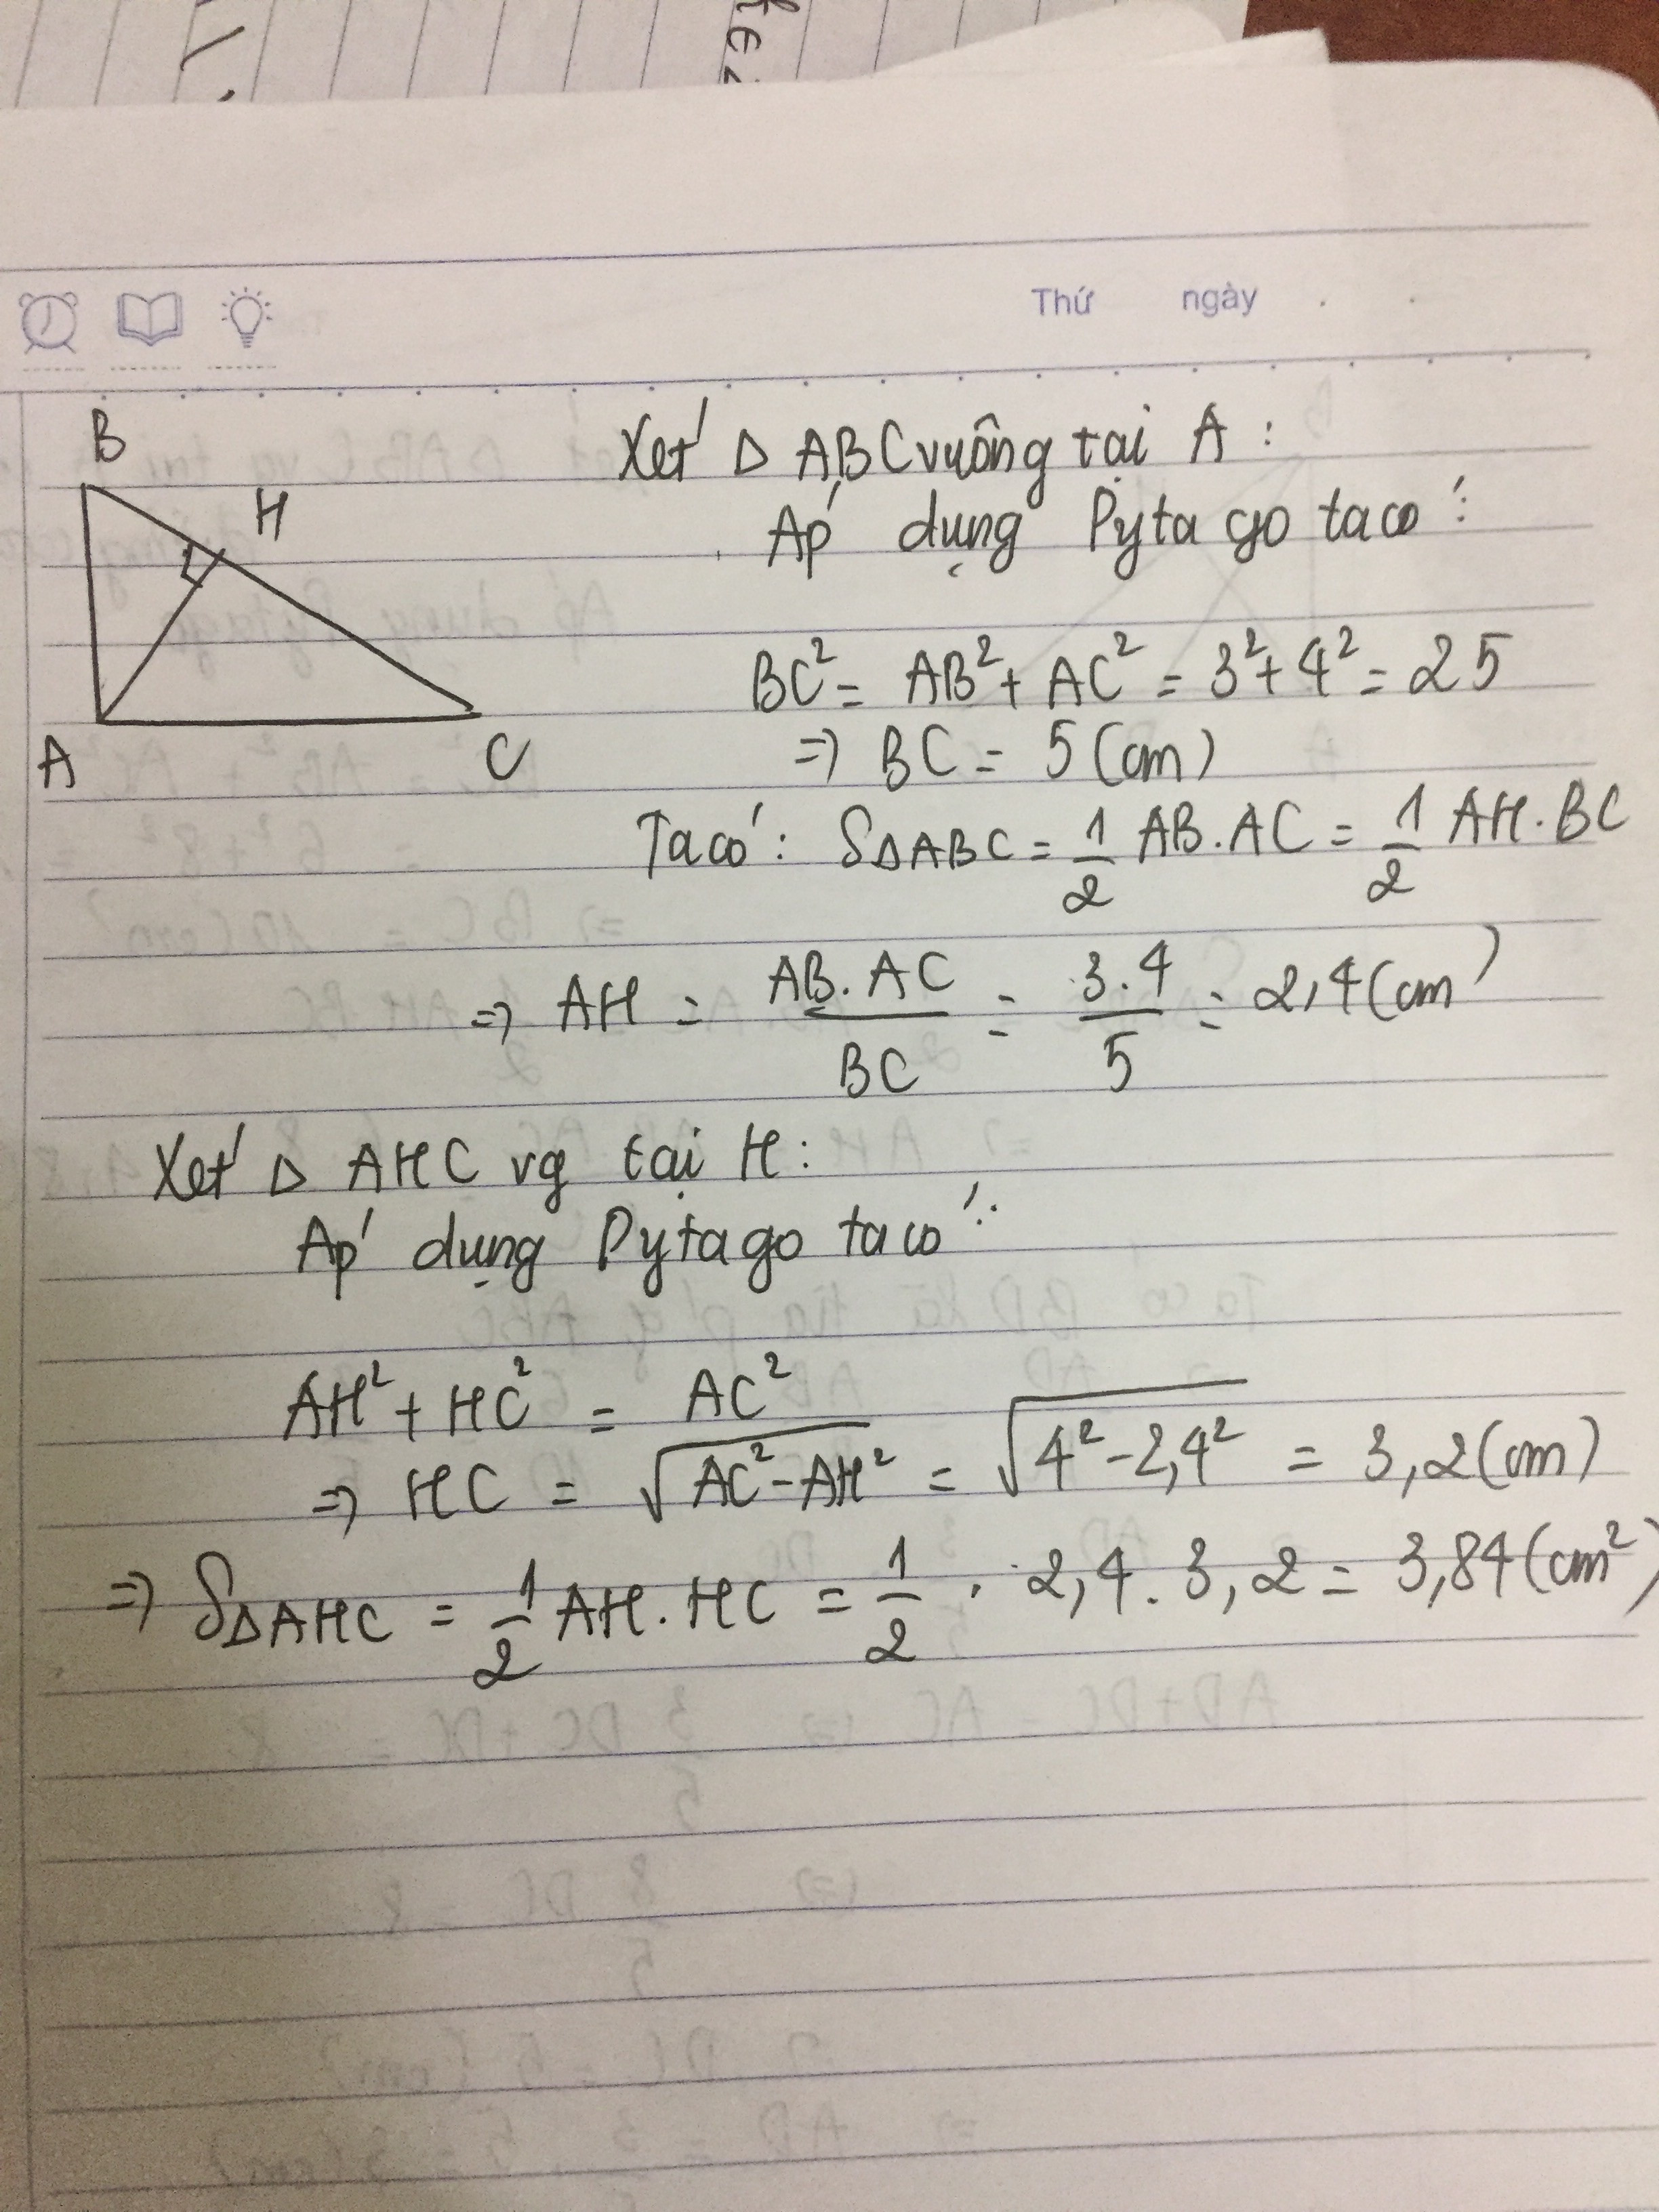 Thứ ngày
B
H
A
C
Xét Δ ABC vuông tại A :
Áp dụng Pytago ta có :
BC² = AB² + AC² = 3² + 4² = 25
=> BC = 5 (cm)
Ta có : SΔABC = 1/2 AB.AC = 1/2 AH.BC
=> AH = AB.AC/BC = 3.4/5 = 2,4 (cm)
Xét Δ AHC vg tại H :
Áp dụng Pytago ta có :
AH² + HC² = AC²
=> HC = √(AC² - AH²) = √(4² - 2,4²) = 3,2 (cm)
=> SΔAHC = 1/2 AH.HC = 1/2 . 2,4 . 3,2 = 3,84 (cm²)